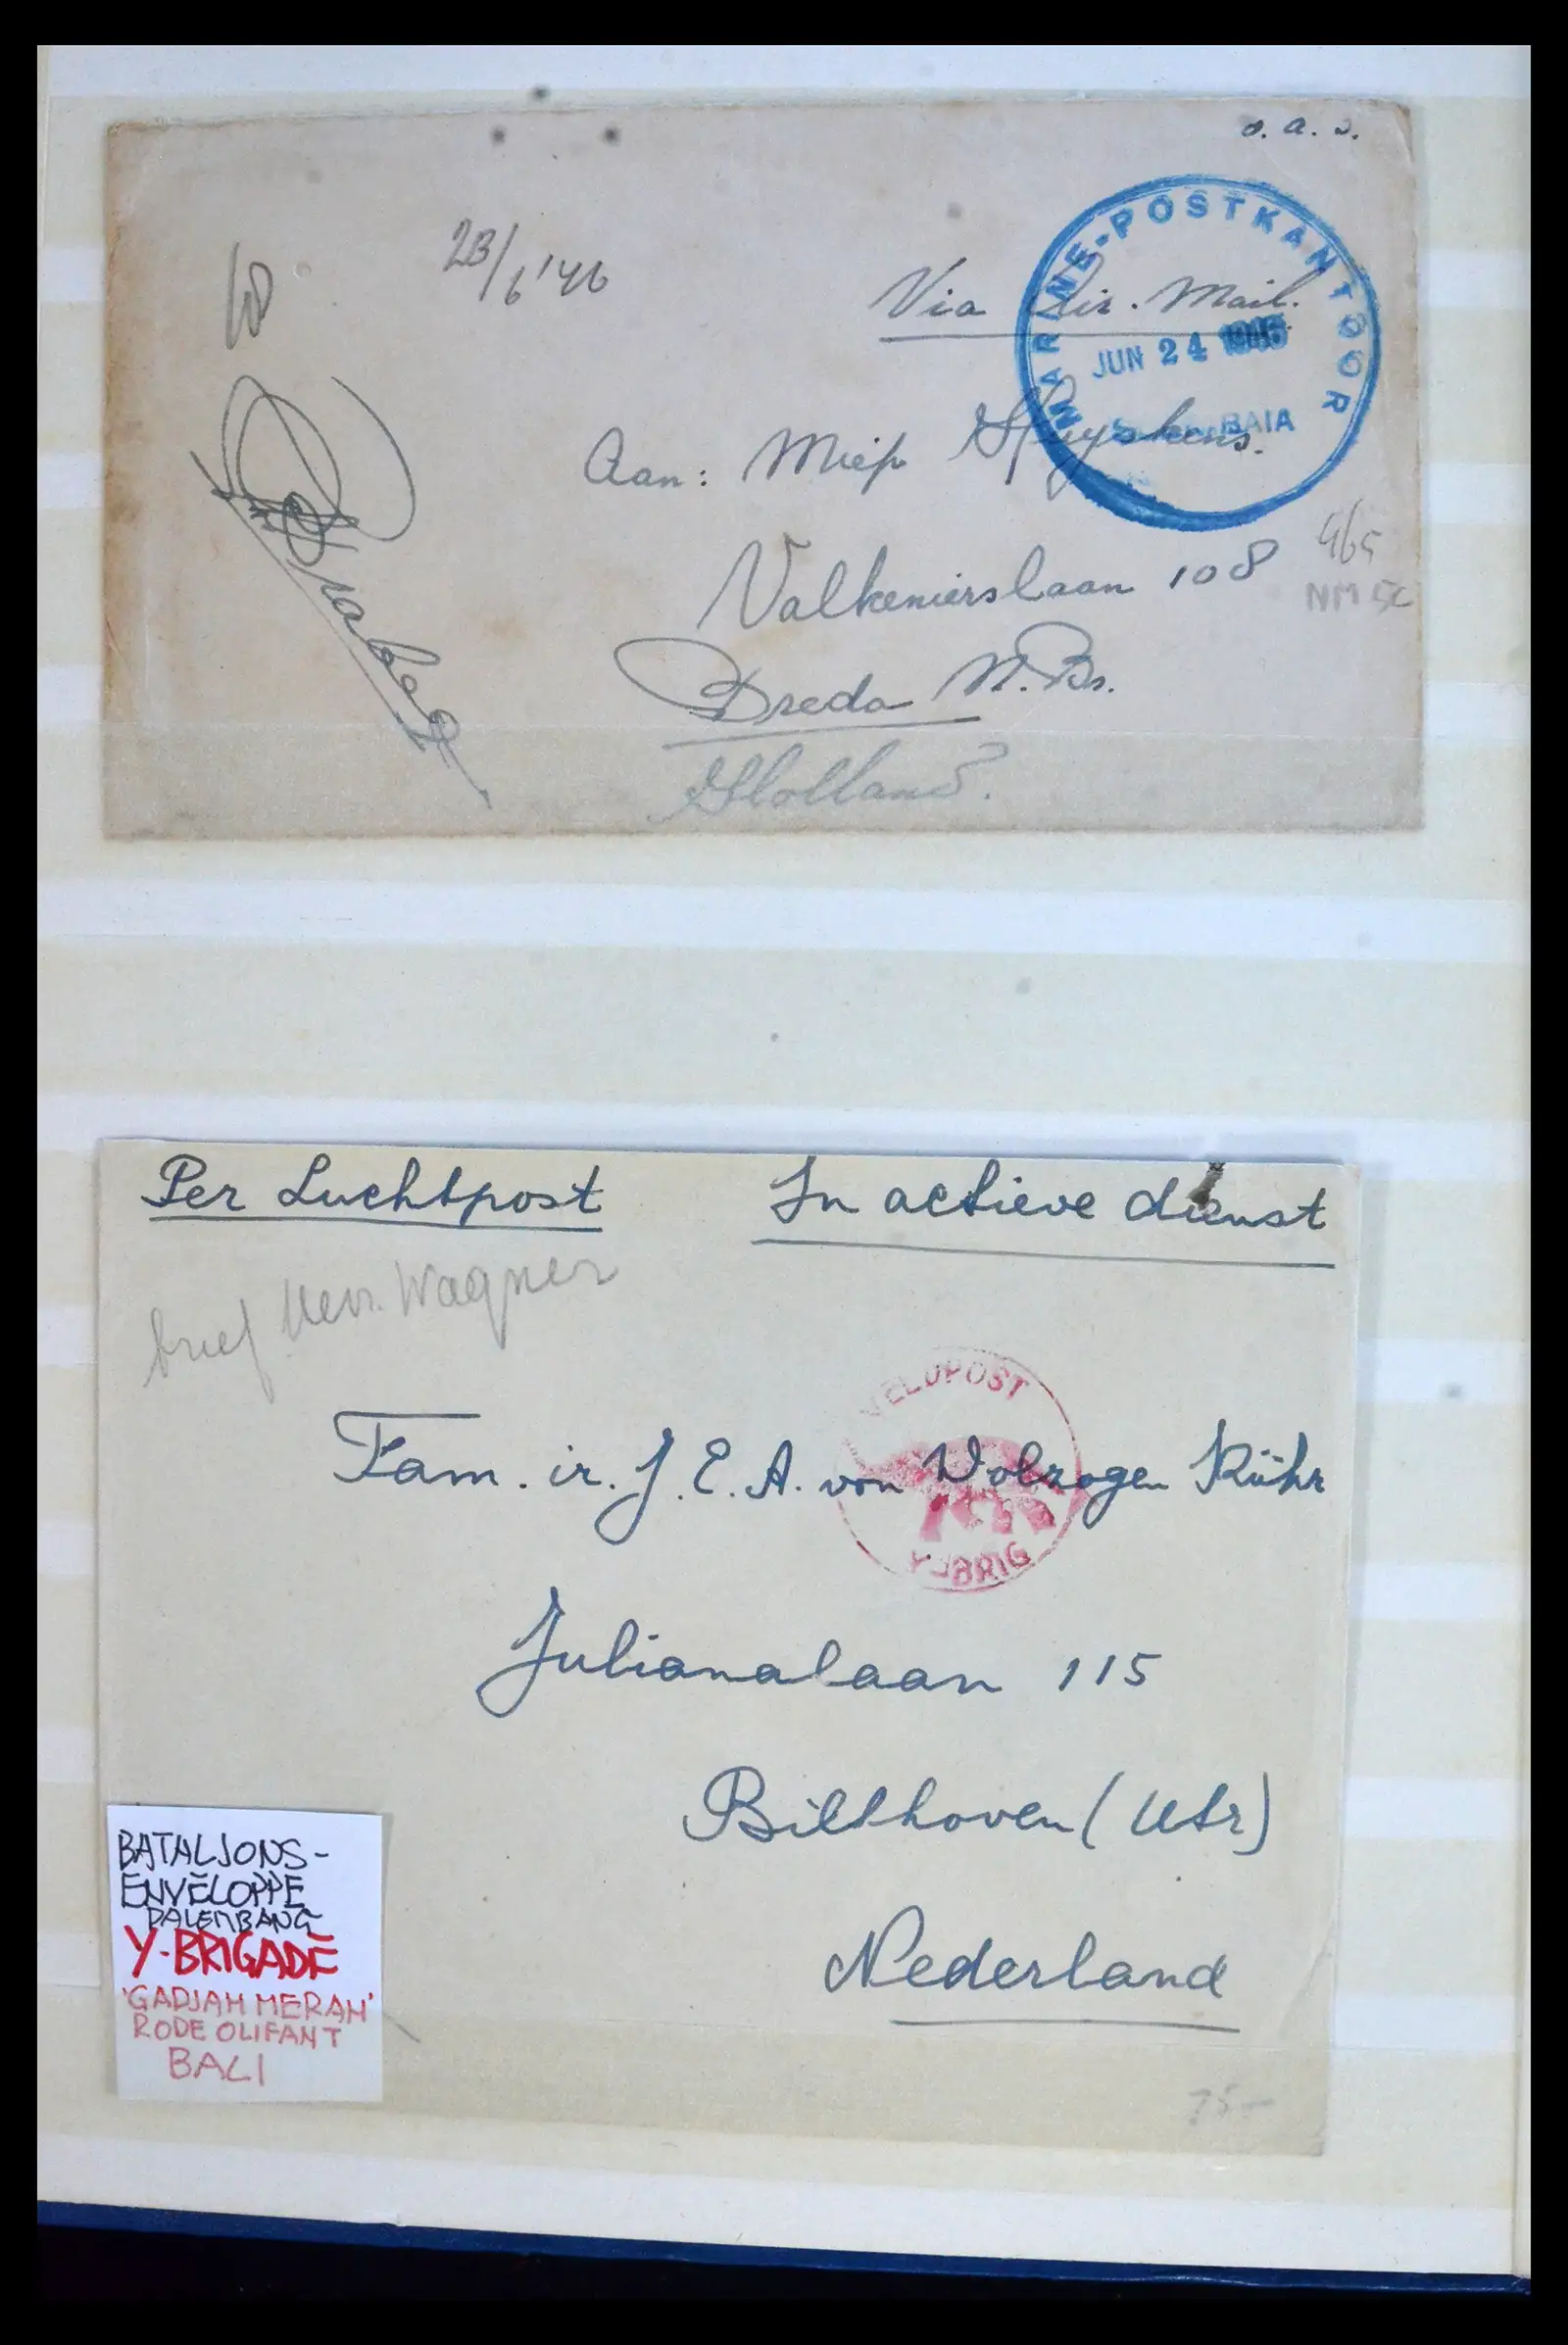 o. a. s.
23/6 '46
Via Air. Mail.
MARINE-POSTKANTOOR
JUN 24 1946
BAIA
Aan: Miep
Valkenierslaan 108
465
Breda N.Br.
Holland.
Per Luchtpost In actieve dienst
brief Mevr. Wagner
VELDPOST
Fam. ir. J. E. A. von Wolzogen Kühr
Y-BRIG
Julianalaan 115
Bilthoven (Utr)
Nederland
BATALJONS-
ENVELOPPE
PALEMBANG
Y-BRIGADE
'GADJAH MERAH'
RODE OLIFANT
BALI
75-